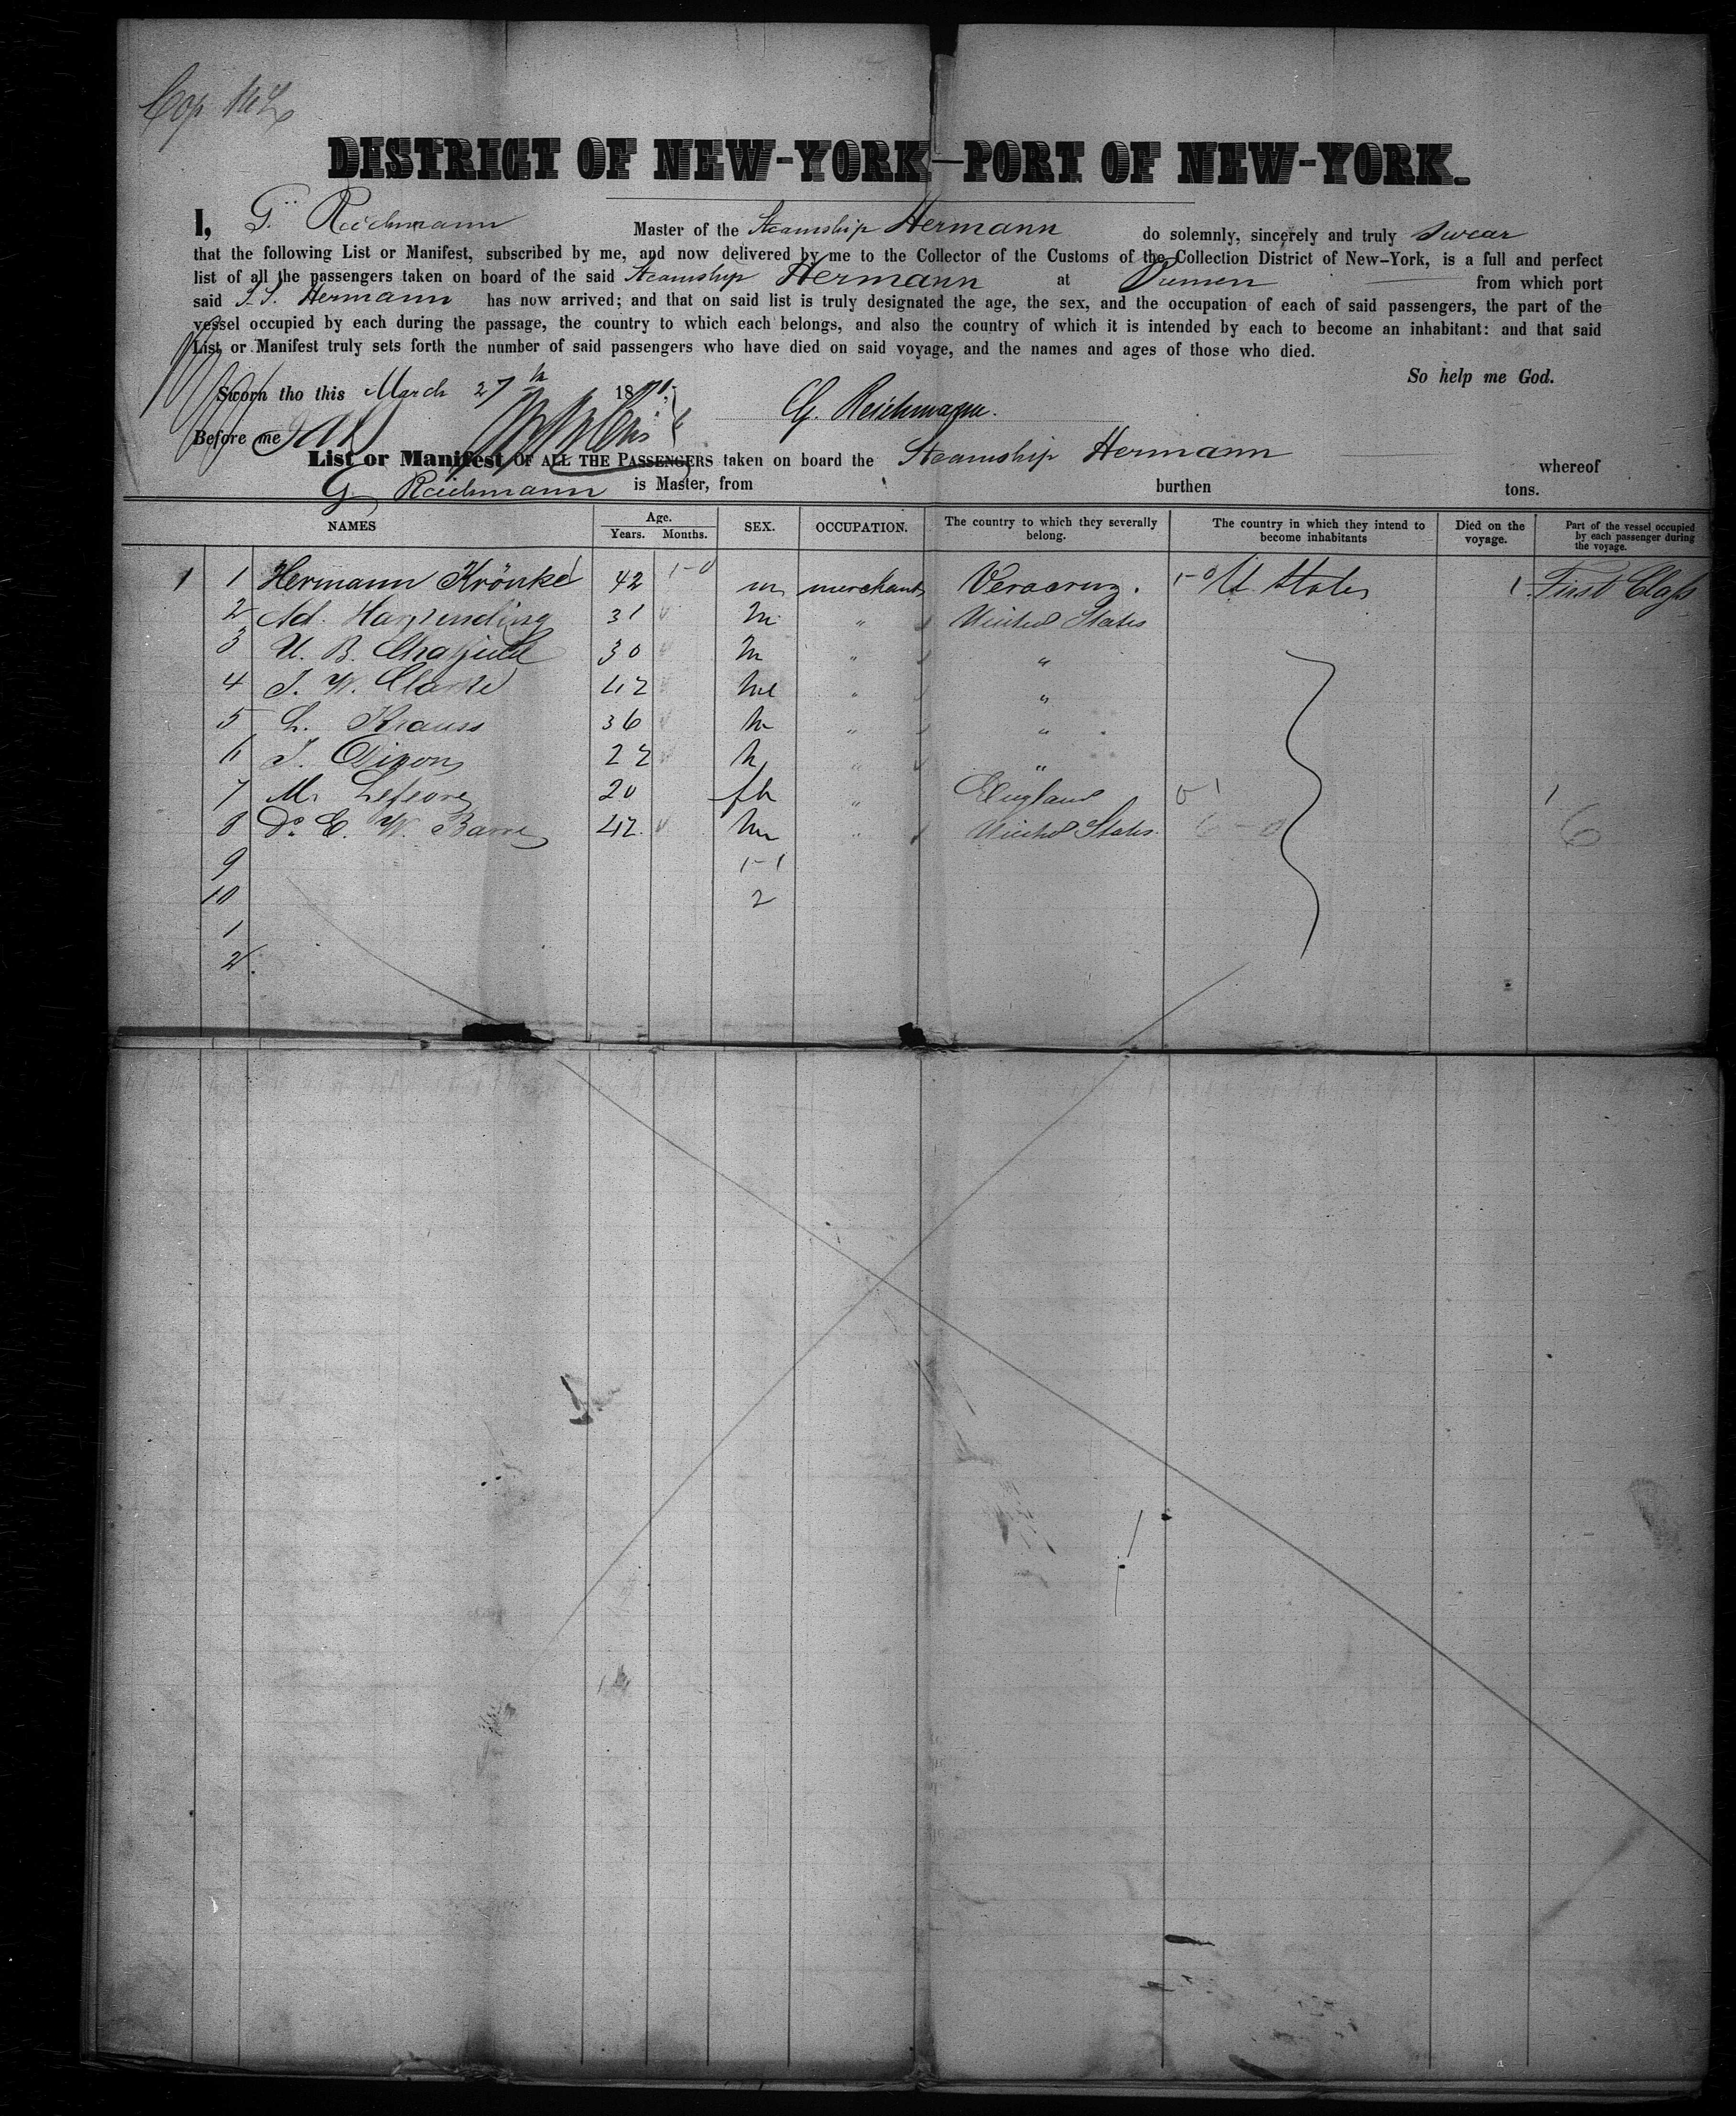 DISTRICT OF NEW-YORK—PORT OF NEW-YORK.
I, G. Reichmann Master of the Steamship Hermann do solemnly, sincerely and truly swear
that the following List or Manifest, subscribed by me, and now delivered by me to the Collector of the Customs of the Collection District of New-York, is a full and perfect
list of all the passengers taken on board of the said Steamship Hermann at Bremen from which port
said S.S. Hermann has now arrived; and that on said list is truly designated the age, the sex, and the occupation of each of said passengers, the part of the
vessel occupied by each during the passage, the country to which each belongs, and also the country of which it is intended by each to become an inhabitant: and that said
List or Manifest truly sets forth the number of said passengers who have died on said voyage, and the names and ages of those who died.
So help me God.
Sworn tho this March 27th 18
G. Reichmann.
Before me
List or Manifest OF ALL THE PASSENGERS taken on board the Steamship Hermann whereof
G. Reichmann is Master, from burthen tons.
NAMES Age. Years. Months. SEX. OCCUPATION. The country to which they severally belong. The country in which they intend to become inhabitants Died on the voyage. Part of the vessel occupied by each passenger during the voyage.
1 1 Hermann Krönke 42 1-0 m merchant Veracruz. 1-0 U. States 1 First Class
2 Ad. 31 m " United States
3 U. B. 30 m " "
4 J. W. Clarke 42 m " "
5 L. Krauss 36 m " "
6 J. Dixon 22 m " "
7 M. Lefevre 20 " England 0-1 1
8 Do. E. W. 42 m " United States 6-0 6
9 1-1
10 2
1
2